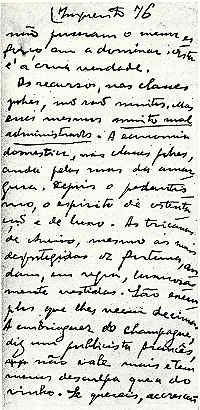 (Imprensa 76
não puseram o menor es
forço em a dominar: esta
é a crua verdade.
As recursos, nas classes
pobres, não são muitos. Mas
esses mesmos muito mal
administrados. A economia
domestica, nas classes pobres,
anda pelas ruas da amar
gura. Depois o pedantis
mo, o espirito de ostenta
ção e de luxo. As tricanas
de Aveiro, mesmo as mais
desprotegidas da fortuna, an
dam, em regra, luxuosa
mente vestidas. São exem
plos que lhes veem de cima.
A embriaguez do champagne,
diz um publicista francês,
não vale mais e tem
menos desculpa que a do
vinho. Se quereis, accrescen